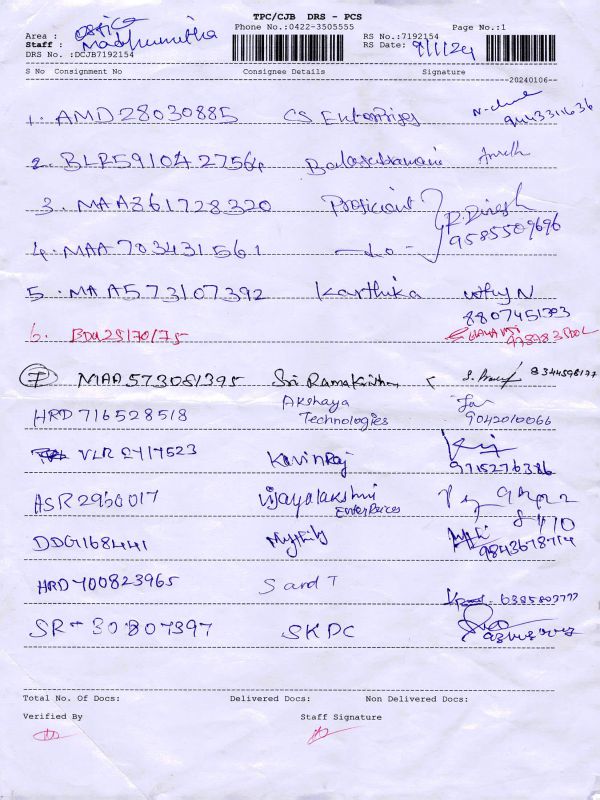 TPC/CJB DRS - PCS
Phone No.:0422-3505555 Page No.:1
Area : office RS No.:7192154
Staff : Madhumitha RS Date: 9/1/24
DRS No. :DCJB7192154
S No Consignment No Consignee Details Signature
20240106
1. AMD28030885 CS Enterprises
2. BLR591042756 Balasubramani
3. MAA861728320 Proficient P. Dinesh
9585509696
4. MAA703431561 -do-
5. MAA573107392 Karthika
8807451303
6. BDQ25170175
7 MAA573081395 Sri Ramakrishna 8344598177
HRD716528518 Akshaya Technologies 9042010066
VLR2717523 KavinRaj 9715276386
ASR2950017 Vijayalakshmi Enterprices
DDG1168441 Mythily 9843678714
HRD700823965 S and T
SR-30807397 SKDC
Total No. Of Docs: Delivered Docs: Non Delivered Docs:
Verified By Staff Signature